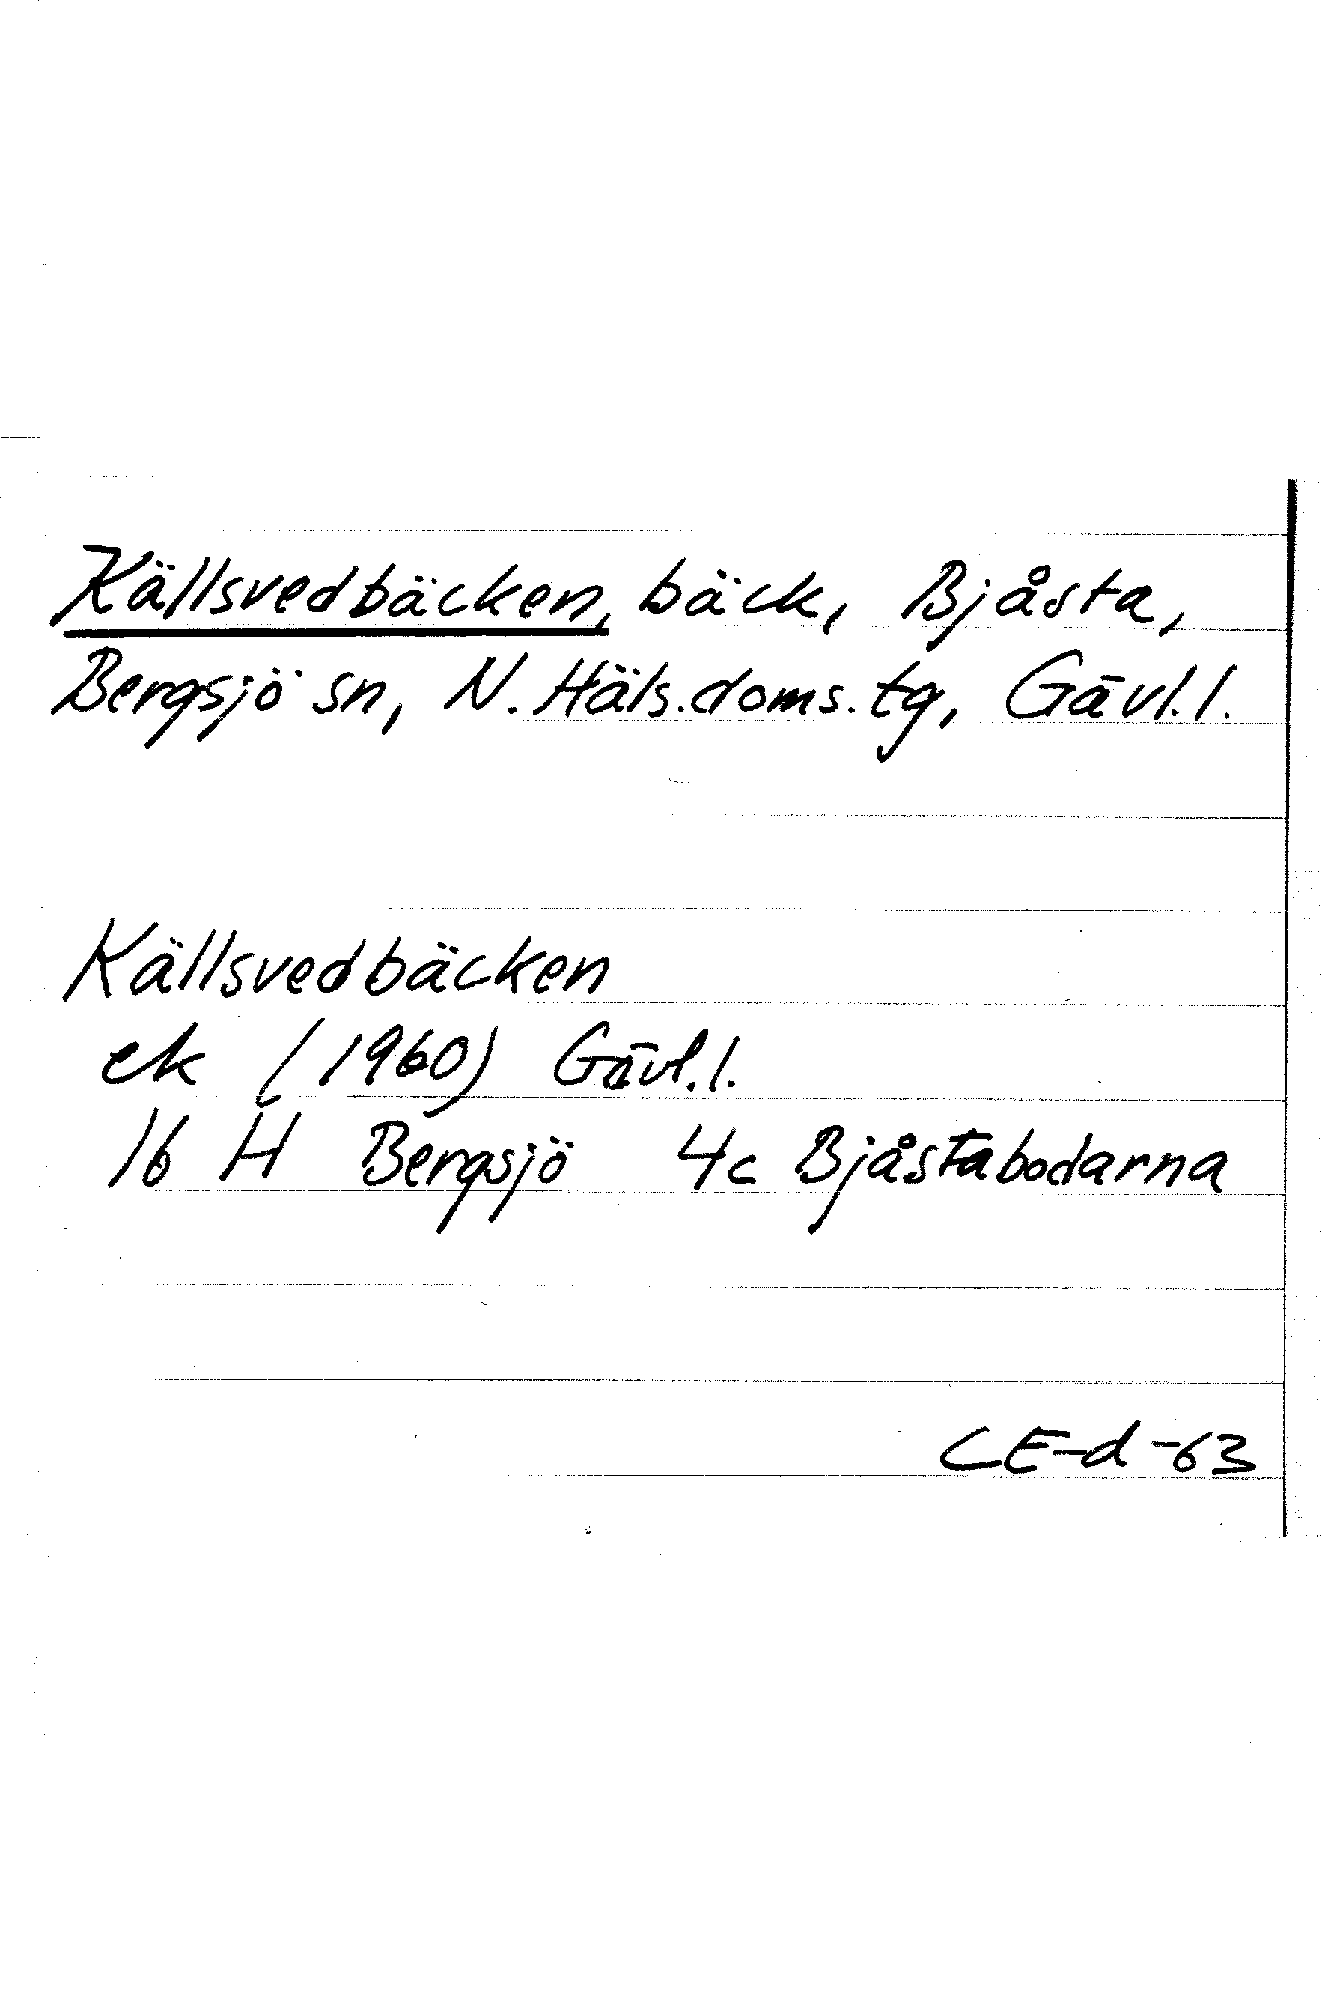 Källsvedbäcken, bäck, Bjåsta,
Bergsjö sn, N. Häls. doms. tg, Gävl. l.
Källsvedbäcken
ek (1960) Gävl. l.
16 H Bergsjö 4c Bjåstabodarna
CE-d-63